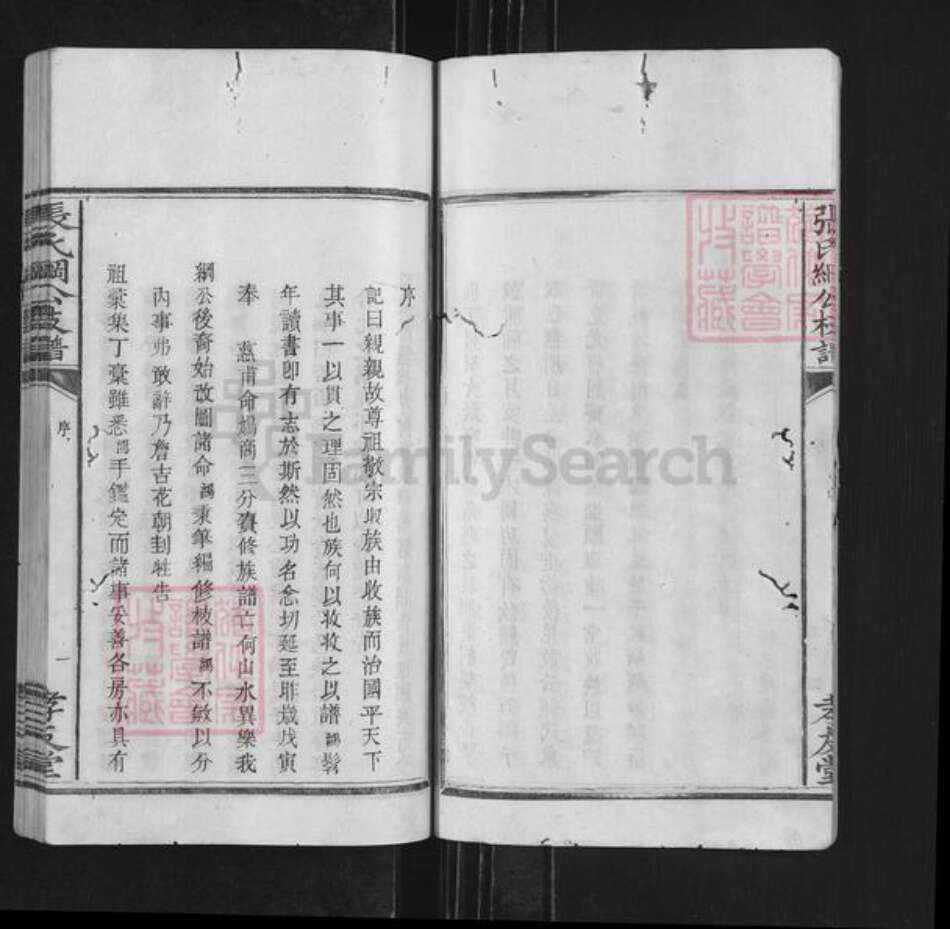 張氏綱公枝譜
孝友堂
序
記曰親親故尊祖敬宗収族由收族而治國平天下
其事一以貫之理固然也族何以收收之以譜 髫
年讀書即有志於斯然以功名念切延至昨歲戊寅
奉 慈甫命 商三分賚修族譜亡何山水異樂我
綱公後裔始改圖諸命 秉筆編修枝譜 不敏以分
內事弗敢辭乃詹吉花朝刲牲告
祖彙集丁稾雖悉 手鑑定而諸事妥善各房亦具有
張氏綱公枝譜
序
一
孝友堂
譜學會
收藏
FamilySearch